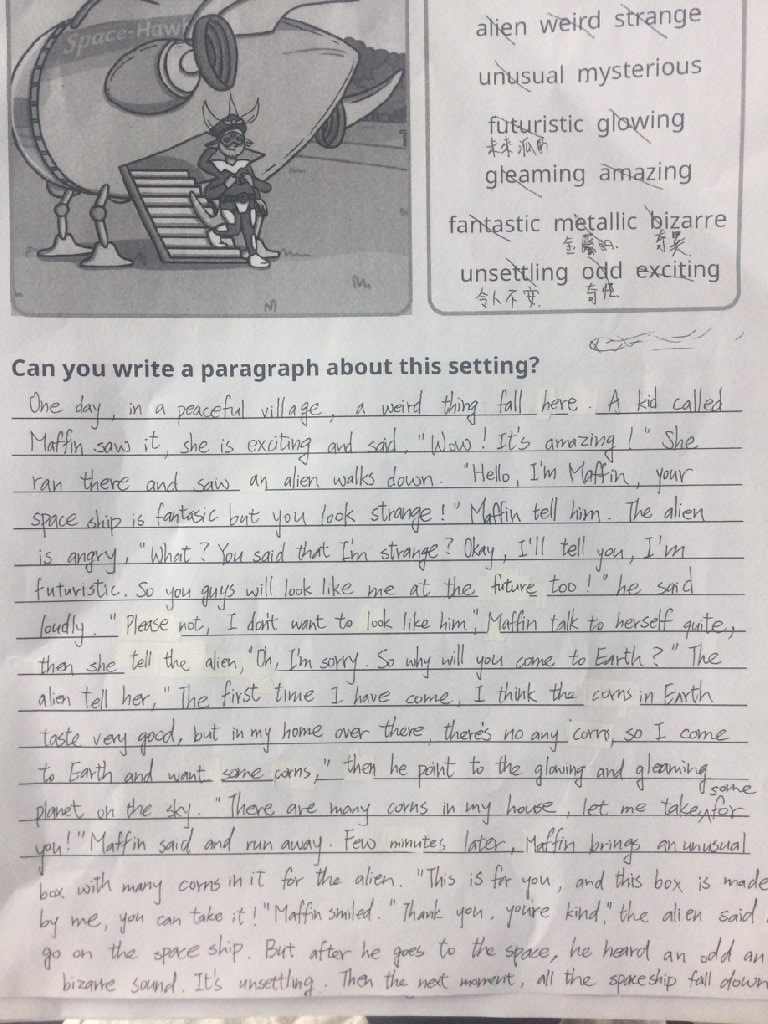 Space-Hawk
alien weird strange
unusual mysterious
futuristic glowing
未来派的
gleaming amazing
fantastic metallic bizarre
金属的. 奇异
unsettling odd exciting
令人不安 奇怪
Can you write a paragraph about this setting?
One day, in a peaceful village, a weird thing fall here. A kid called
Maffin saw it, she is exciting and said, "Wow! It's amazing!" She
ran there and saw an alien walks down. "Hello, I'm Maffin, your
space ship is fantasic but you look strange!" Maffin tell him. The alien
is angry, "What? You said that I'm strange? Okay, I'll tell you, I'm
futuristic. So you guys will look like me at the future too!" he said
loudly. "Please not, I don't want to look like him," Maffin talk to herself quite,
then she tell the alien, "Oh, I'm sorry. So why will you come to Earth?" The
alien tell her, "The first time I have come, I think the corns in Earth
taste very good, but in my home over there, there's no any corn, so I come
to Earth and want some corns," then he point to the glowing and gleaming
planet on the sky. "There are many corns in my house, let me take some for
you!" Maffin said and run away. Few minutes later, Maffin brings an unusual
box with many corns in it for the alien. "This is for you, and this box is made
by me, you can take it!" Maffin smiled. "Thank you, you're kind," the alien said
go on the space ship. But after he goes to the space, he heard an odd an
bizarre sound. It's unsettling. Then the next moment, all the spaceship fall down